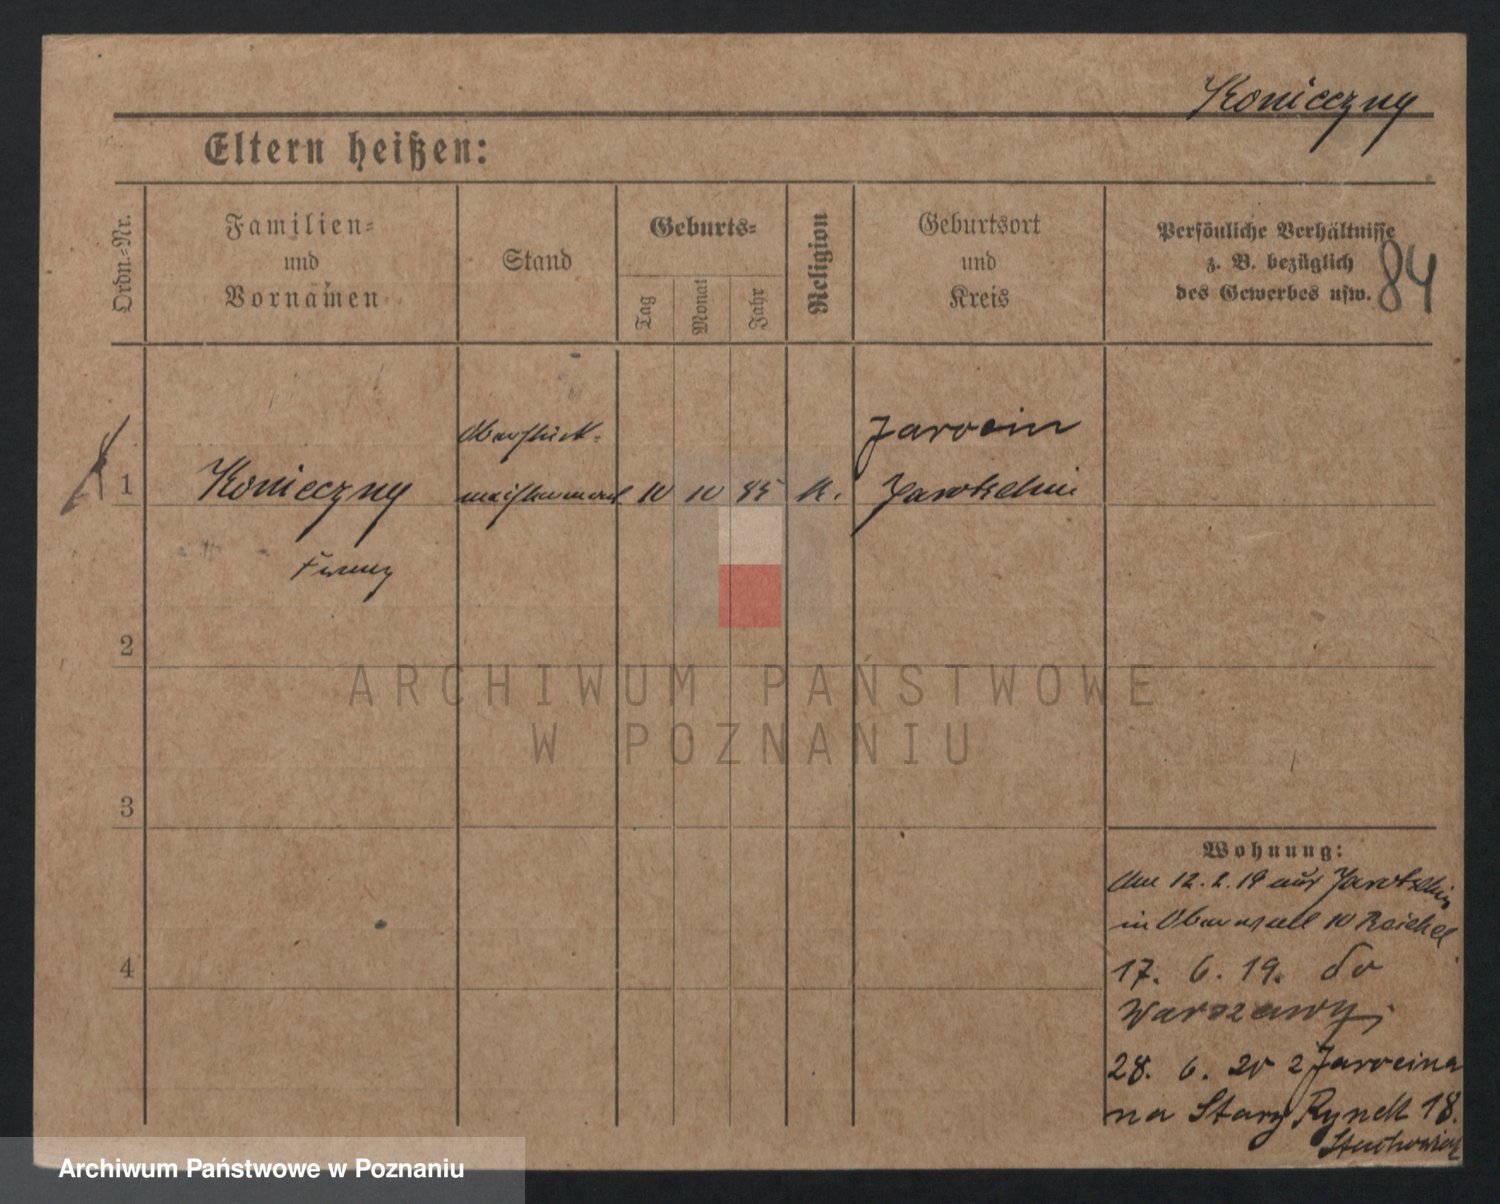 Konieczny
Eltern heißen:
Ordn.-Nr.
Familien-
und
Vornamen
Stand
Geburts-
Tag
Monat
Jahr
Religion
Geburtsort
und
Kreis
Persönliche Verhältnisse
z. B. bezüglich
des Gewerbes usw.
84
1
Konieczny
10 10 85
k.
Jarocin
Jarotschin
2
3
4
Wohnung:
Am 12.2.19 aus Jarotschin
in 10 Reichel
17. 6. 19. do
Warszawy
28. 6. 20 z Jarocina
na Stary Rynek 18.
ARCHIWUM PAŃSTWOWE
W POZNANIU
Archiwum Państwowe w Poznaniu